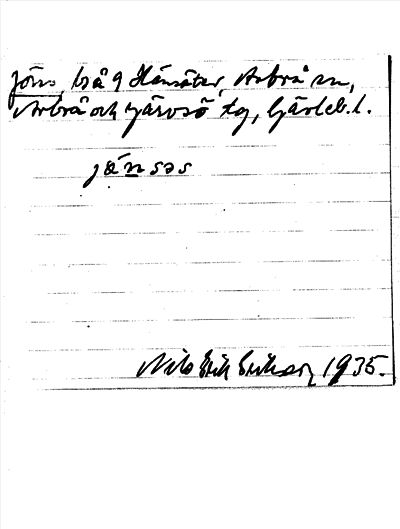 Jöns, bså 9 Hänsäter, Arbrå sn,
Arbrå och Järvsö tg, Gävleb. l.
jä́nsəs
Nils Erik Erikson 1935.